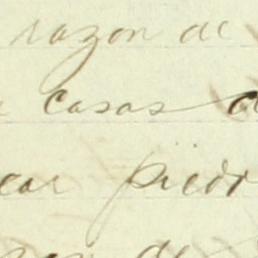 razon de
casas
car piedr
de